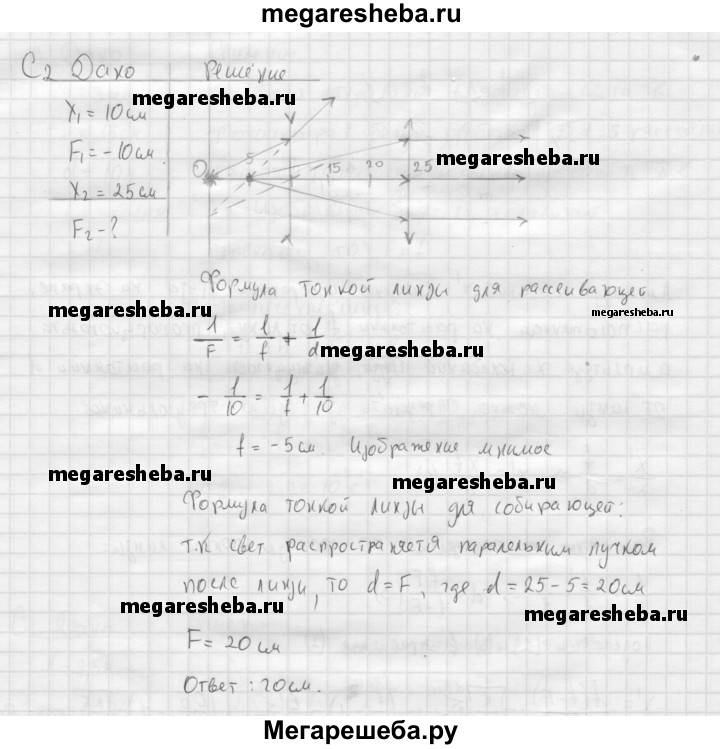 megaresheba.ru
C2 Дано Решение
megaresheba.ru
X₁ = 10 см
F₁ = -10 см
X₂ = 25 см
F₂ - ?
O 5 15 20 25
megaresheba.ru
Формула тонкой линзы для рассеивающей
megaresheba.ru
megaresheba.ru
1/F = 1/f + 1/d
megaresheba.ru
- 1/10 = 1/f + 1/10
f = -5 см. Изображение мнимое
megaresheba.ru
megaresheba.ru
Формула тонкой линзы для собирающей:
т.к свет распространяется паралельным пучком
после линзы, то d = F, где d = 25 - 5 = 20 см
megaresheba.ru
megaresheba.ru
F = 20 см
Ответ: 20 см.
Мегарешеба.ру